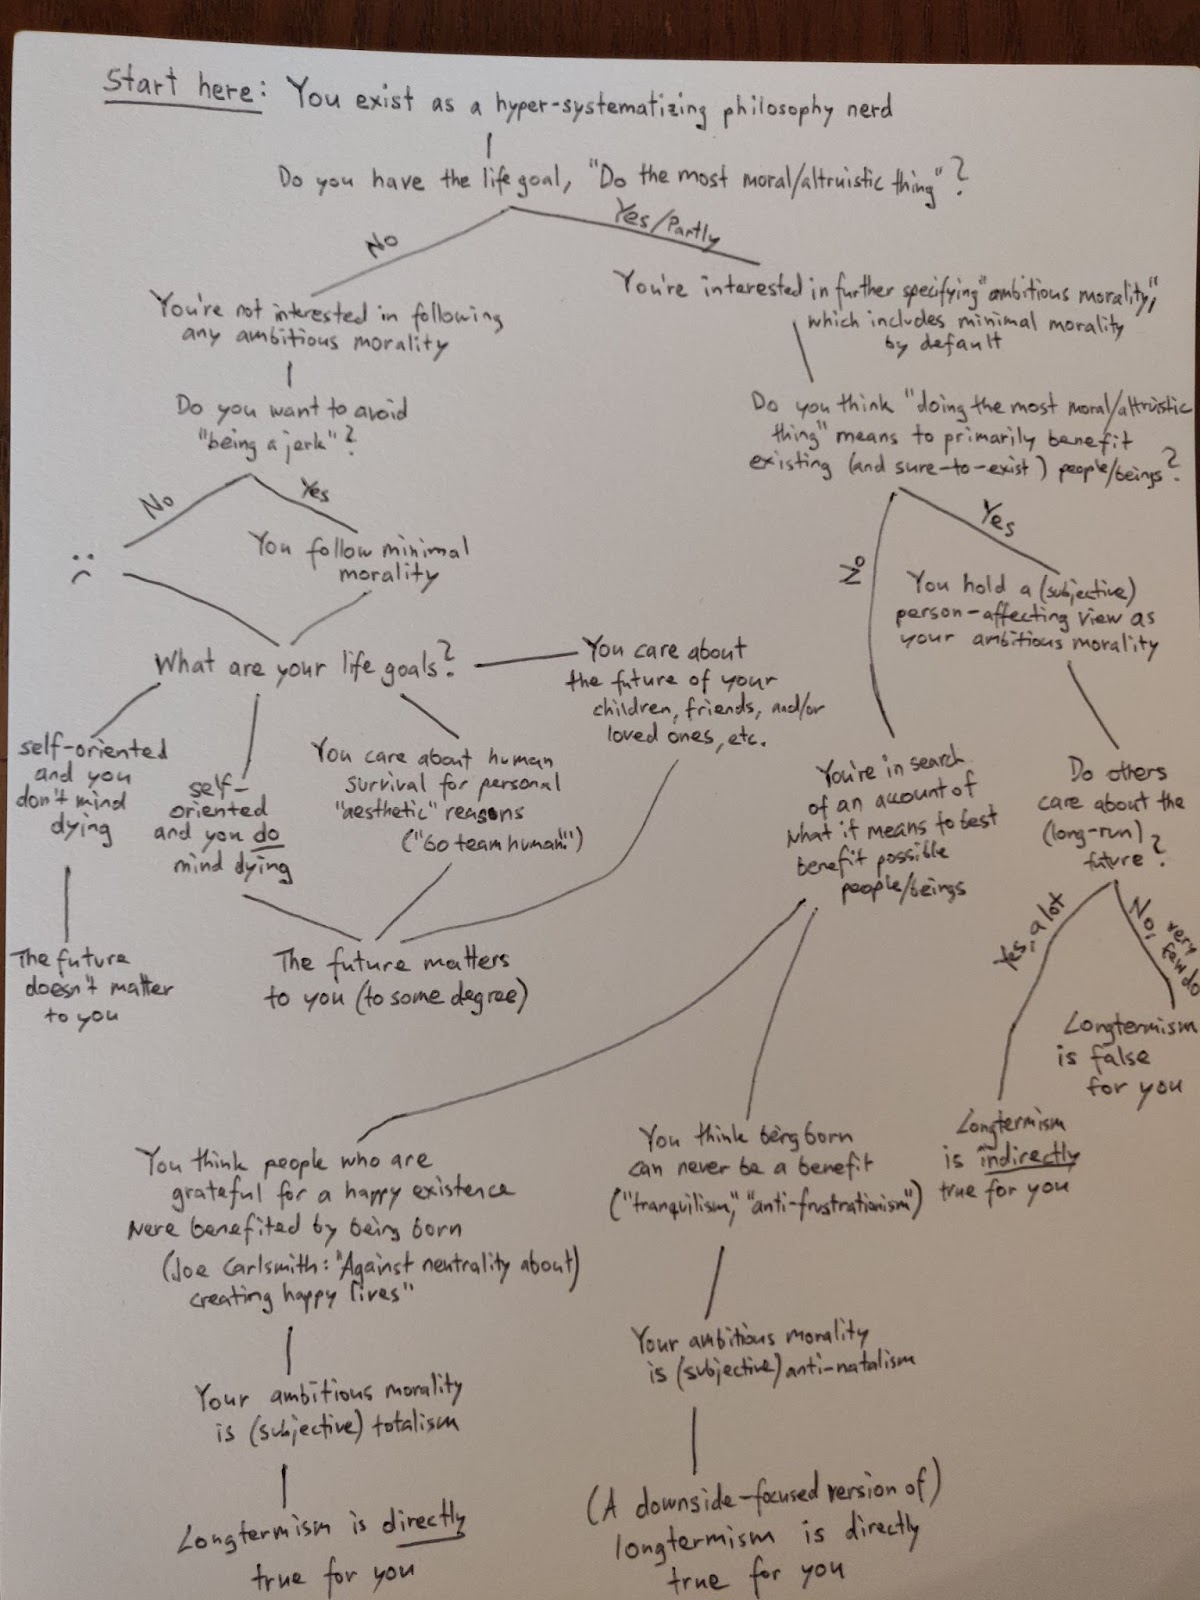 Start here: You exist as a hyper-systematizing philosophy nerd
Do you have the life goal, "Do the most moral/altruistic thing"?
No
Yes/Partly
You're not interested in following
any ambitious morality
Do you want to avoid
"being a jerk"?
No
Yes
You follow minimal
morality
What are your life goals?
self-oriented
and you
don't mind
dying
self-
oriented
and you do
mind dying
You care about human
survival for personal
"aesthetic" reasons
("Go team human!")
You care about
the future of your
children, friends, and/or
loved ones, etc.
The future
doesn't matter
to you
The future matters
to you (to some degree)
You're interested in further specifying "ambitious morality,"
which includes minimal morality
by default
Do you think "doing the most moral/altruistic
thing" means to primarily benefit
existing (and sure-to-exist) people/beings?
No
Yes
You hold a (subjective)
person-affecting view as
your ambitious morality
Do others
care about the
(long-run)
future?
Yes, a lot
No, very
few do
Longtermism
is false
for you
Longtermism
is indirectly
true for you
You're in search
of an account of
what it means to best
benefit possible
people/beings
You think people who are
grateful for a happy existence
were benefited by being born
(Joe Carlsmith: "Against neutrality about
creating happy lives")
Your ambitious morality
is (subjective) totalism
Longtermism is directly
true for you
You think being born
can never be a benefit
("tranquilism," "anti-frustrationism")
Your ambitious morality
is (subjective) anti-natalism
(A downside-focused version of)
longtermism is directly
true for you